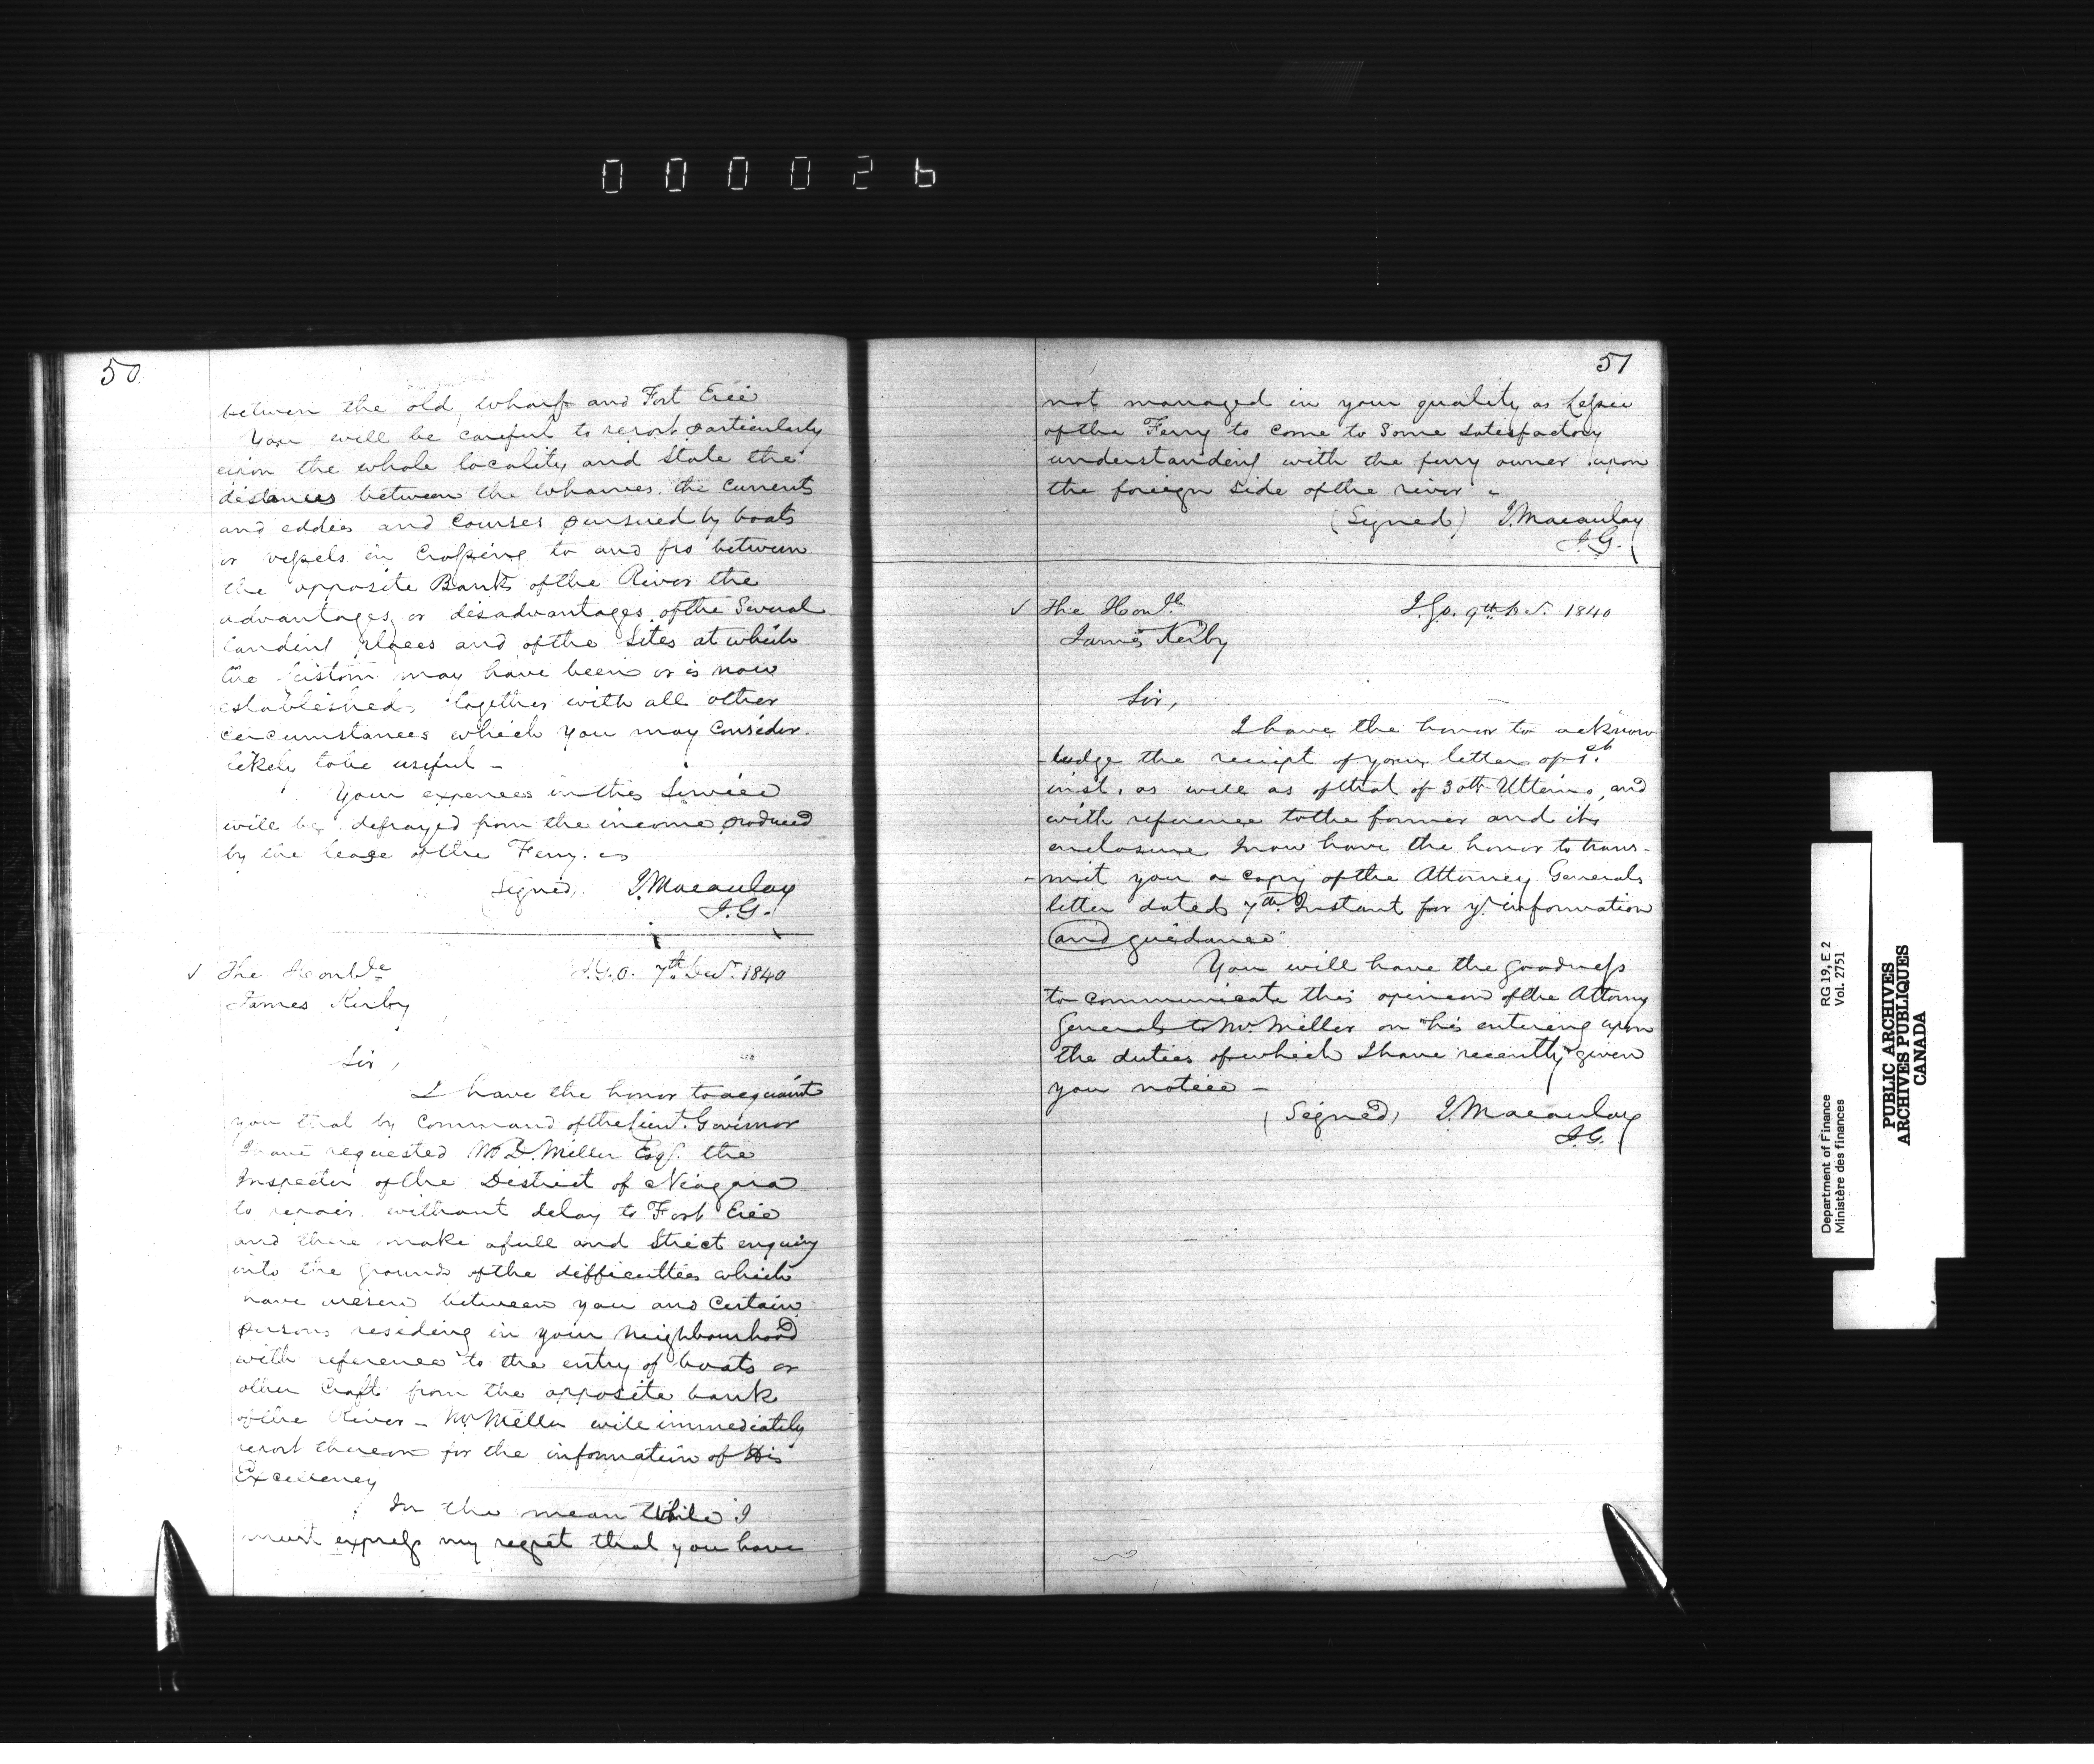 000026
50
between the old wharf and Fort Erie
You will be careful to report particularly
upon the whole locality and State the
distances between the wharves. the currents
and eddies and Courses pursued by boats
or vessels in Crossing to and fro between
the opposite Banks of the River the
advantages or disadvantages of the Several
landing places and of the Sites at which
the Custom may have been or is now
established, together with all other
circumstances which you may Consider
likely to be useful –
Your expences in this Service
will be defrayed from the income produced
by the lease of the Ferry.
(Signed) J. Macaulay
I.G.
✓ The Honble I.G.O. 7th Decr. 1840
James Kerby
Sir,
I have the honor to acquaint
you that by Command of the Lieut. Governor
I have requested Wm D. Miller Esqr. the
Inspector of the District of Niagara
to repair without delay to Fort Erie
and there make a full and Strict enquiry
into the grounds of the difficulties which
have arisen between you and Certain
persons residing in your Neighbourhood
with reference to the entry of boats or
other Craft from the opposite bank
of the River – Mr Miller will immediately
report thereon for the information of His
Excellency
In the mean While I
must express my regret that you have
51
not managed in your quality as Lessee
of the Ferry to Come to Some Satisfactory
understanding with the ferry owner upon
the foreign Side of the river –
(Signed) J. Macaulay
I.G.
✓ The Honble I.G.O. 9th Decr. 1840
James Kerby
Sir,
I have the honor to acknow
-ledge the receipt of your letter of 1st
inst. as well as of that of 30th Ultimo, and
with reference to the former and its
enclosure I now have the honor to trans-
-mit you a copy of the Attorney Generals
letter dated 7th Instant for yr information
and guidance
You will have the goodness
to communicate this opinion of the Attorney
General to Mr Miller on his entering upon
the duties of which I have recently given
you notice –
(Signed) J. Macaulay
I.G.
Department of Finance RG 19, E 2
Ministère des finances Vol. 2751
PUBLIC ARCHIVES
ARCHIVES PUBLIQUES
CANADA